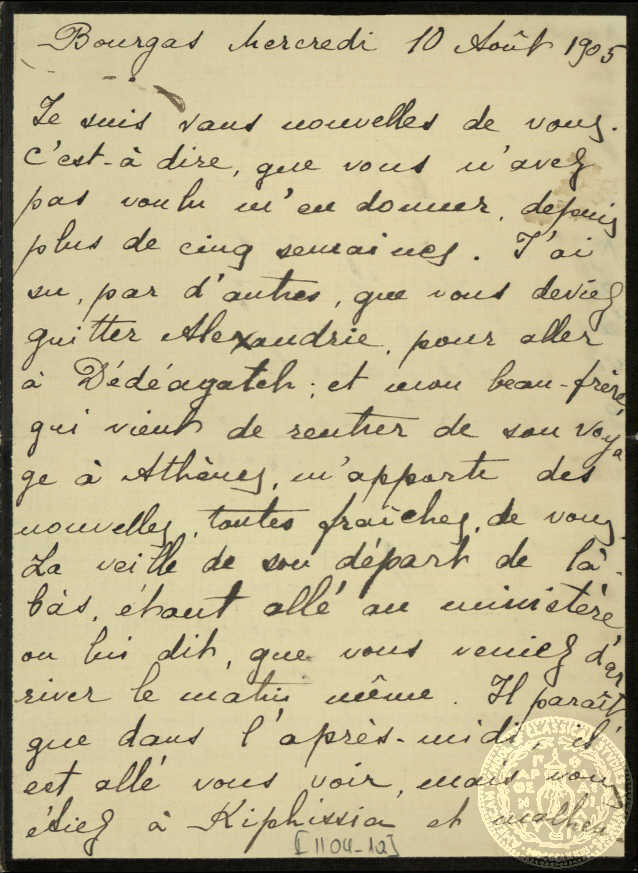 Bourgas Mercredi 10 Août 1905
Je suis sans nouvelles de vous.
C'est-à dire, que vous n'avez
pas voulu m'en donner, depuis
plus de cinq semaines. J'ai
su, par d'autres, que vous deviez
quitter Alexandrie, pour aller
à Dédéagatch; et mon beau-frère
qui vient de rentrer de son voya
ge à Athènes, m'apporte des
nouvelles, toutes fraîches, de vous.
La veille de son départ de là-
bàs, étant allé au ministère
on lui dit, que vous veniez d'ar
river le matin même. Il paraît
que dans l'après-midi, il
est allé vous voir, mais vous
étiez à Kiphissia et malheu
[1104-12]